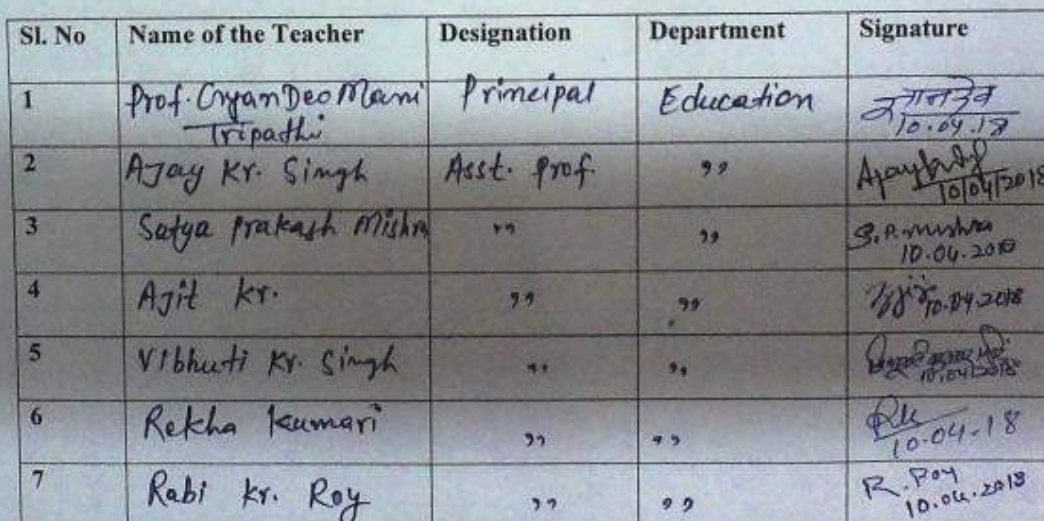 Sl. No Name of the Teacher Designation Department Signature
1 Prof. Gyan Deo Mani Principal Education ज्ञानदेव
Tripathi 10.04.18
2 Ajay Kr. Singh Asst. Prof. ,,
10/04/2018
3 Satya Prakash Mishra ,, ,, S.P. Mishra
10.04.2018
4 Ajit Kr. ,, ,, 10.04.2018
5 Vibhuti Kr. Singh ,, ,,
10.04.2018
6 Rekha Kumari ,, ,,
10-04-18
7 Rabi Kr. Roy ,, ,, R. Roy
10.04.2018